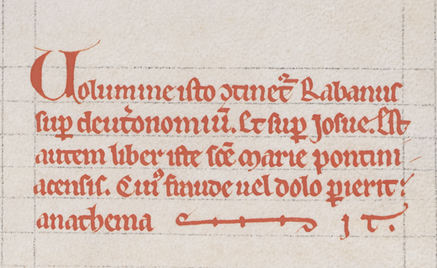 Uolumine isto ↄtinet᷑ Rabanus
suꝑ deut᷑onomiū. Et suꝑ Josue. Est
autem liber iste sc̄e marie pontini
acensis. Cui᷒ fraude uel dolo ꝑierit᷑
anathema sit.